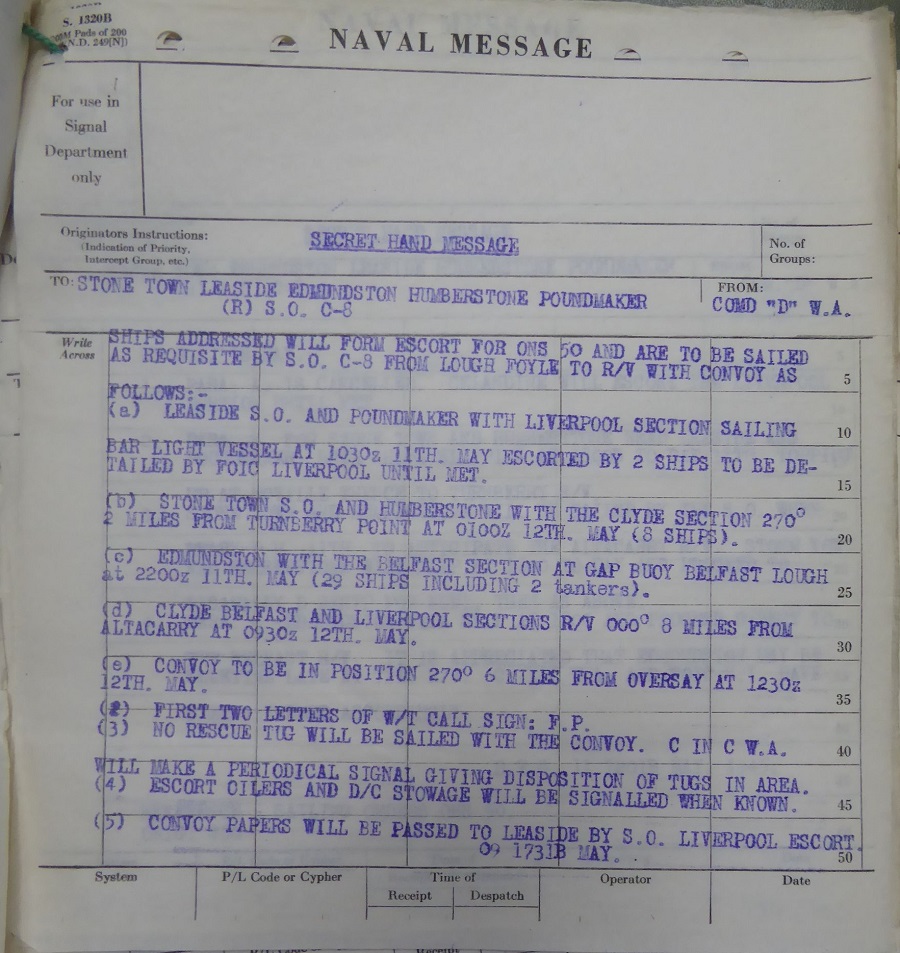 S. 1320B
Pads of 200
N.D. 249[N])
NAVAL MESSAGE
For use in
Signal
Department
only
Originators Instructions:
(Indication of Priority,
Intercept Group, etc.)
SECRET HAND MESSAGE
No. of
Groups:
TO: STONE TOWN LEASIDE EDMUNDSTON HUMBERSTONE POUNDMAKER
(R) S.O. C-8
FROM:
COMD "D" W.A.
Write
Across
SHIPS ADDRESSED WILL FORM ESCORT FOR ONS 50 AND ARE TO BE SAILED
AS REQUISITE BY S.O. C-8 FROM LOUGH FOYLE TO R/V WITH CONVOY AS
5
FOLLOWS:-
(a) LEASIDE S.O. AND POUNDMAKER WITH LIVERPOOL SECTION SAILING
10
BAR LIGHT VESSEL AT 1030z 11TH. MAY ESCORTED BY 2 SHIPS TO BE DE-
TAILED BY FOIC LIVERPOOL UNTIL MET.
15
(b) STONE TOWN S.O. AND HUMBERSTONE WITH THE CLYDE SECTION 270°
2 MILES FROM TURNBERRY POINT AT 0100Z 12TH. MAY (8 SHIPS).
20
(c) EDMUNDSTON WITH THE BELFAST SECTION AT GAP BUOY BELFAST LOUGH
at 2200z 11TH. MAY (29 SHIPS INCLUDING 2 tankers).
25
(d) CLYDE BELFAST AND LIVERPOOL SECTIONS R/V 000° 8 MILES FROM
ALTACARRY AT 0930z 12TH. MAY.
30
(e) CONVOY TO BE IN POSITION 270° 6 MILES FROM OVERSAY AT 1230z
12TH. MAY.
35
(2) FIRST TWO LETTERS OF W/T CALL SIGN: F.P.
(3) NO RESCUE TUG WILL BE SAILED WITH THE CONVOY. C IN C W.A.
40
WILL MAKE A PERIODICAL SIGNAL GIVING DISPOSITION OF TUGS IN AREA.
(4) ESCORT OILERS AND D/C STOWAGE WILL BE SIGNALLED WHEN KNOWN.
45
(5) CONVOY PAPERS WILL BE PASSED TO LEASIDE BY S.O. LIVERPOOL ESCORT.
09 1731B MAY.
50
System
P/L Code or Cypher
Time of
Receipt
Despatch
Operator
Date